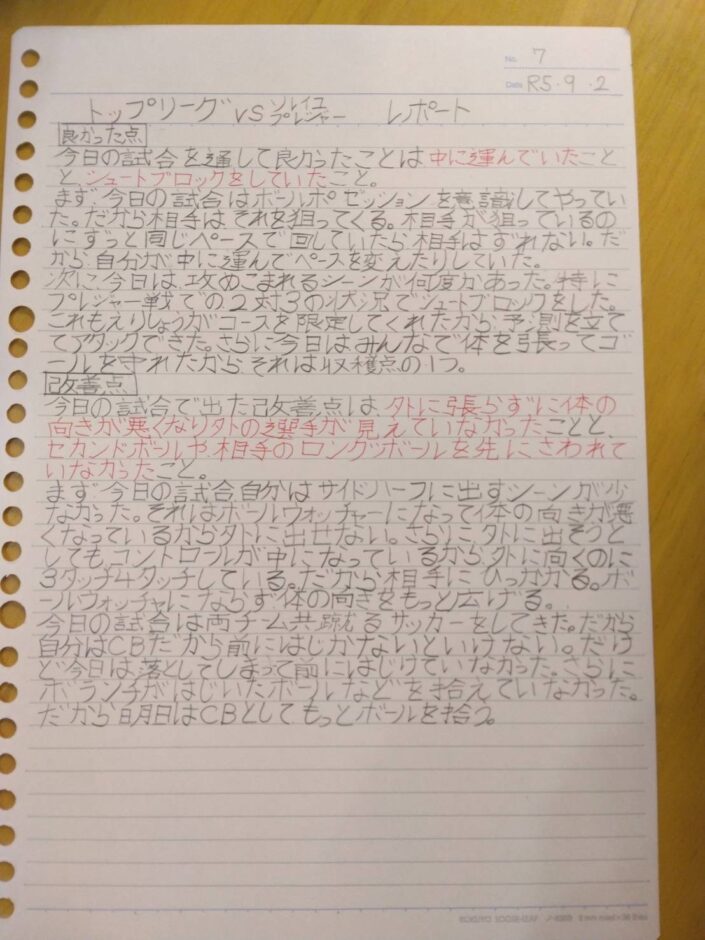 No. 7
Date R5・9・2
トップリーグ VS ソレイユ プレジャー レポート
良かった点
今日の試合を通して良かったことは中に運んでいたこと
と、シュートブロックをしていたこと。
まず、今日の試合はボールポゼッションを意識してやってい
た。だから相手はそれを狙ってくる。相手が狙っているの
にずっと同じペースで回していたら相手はずれない。だ
から自分が中に運んでペースを変えたりしていた。
次に、今日は攻めこまれるシーンが何度かあった。特に
プレジャー戦での2対3の状況でシュートブロックをした。
これもえりしょうがコースを限定してくれたから、予測を立て
てアタックできた。さらに今日はみんなで体を張ってゴ
ールを守れたから、それは収穫点の1つ。
改善点
今日の試合で出た改善点は、外に張らずに体の
向きが悪くなり外の選手が見えていなかったことと、
セカンドボールや相手のロングボールを先にさわれて
いなかったこと。
まず、今日の試合、自分はサイドハーフに出すシーンが少
なかった。それはボールウォッチャーになって体の向きが悪
くなっているから外に出せない。さらに、外に出そうと
してもコントロールが中になっているから、外に向くのに
3タッチ4タッチしている。だから相手にひっかかる。ボ
ールウォッチャにならず、体の向きをもっと広げる。
今日の試合は両チーム共蹴るサッカーをしてきた。だから
自分はCBだから前にはじかないといけない。だけ
ど今日は落としてしまって前にはじけていなかった。さらに
ボランチがはじいたボールなどを拾えていなかった。
だから明日はCBとしてもっとボールを拾う。